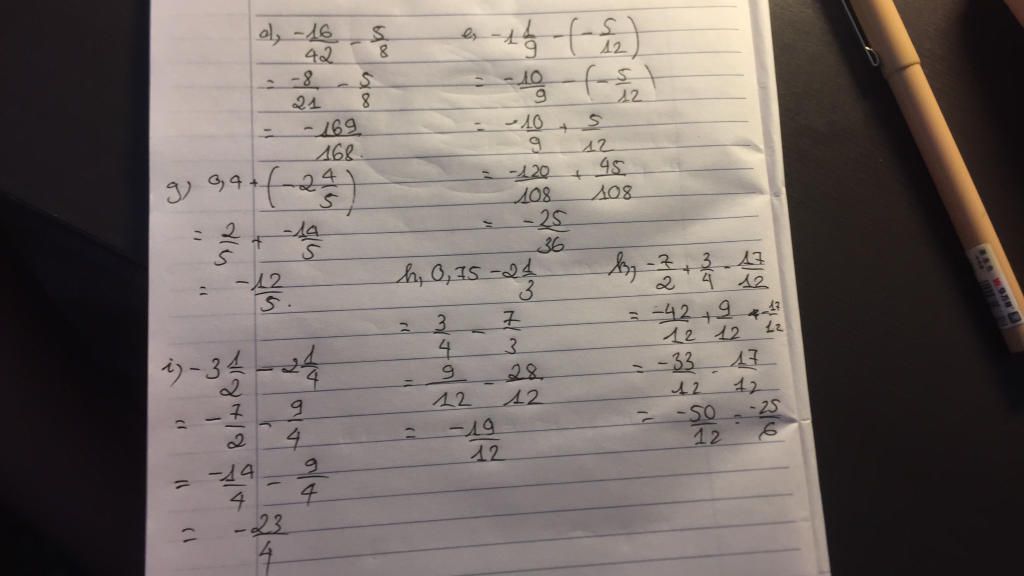 d, -16/42 - 5/8
= -8/21 - 5/8
= -169/168.
e, -1 1/9 - (-5/12)
= -10/9 - (-5/12)
= -10/9 + 5/12
= -120/108 + 45/108
= -25/36
g, 0,4 + (-2 4/5)
= 2/5 + -14/5
= -12/5.
h, 0,75 - 2 1/3
= 3/4 - 7/3
= 9/12 - 28/12
= -19/12
k, -7/2 + 3/4 - 17/12
= -42/12 + 9/12 - 17/12
= -33/12 - 17/12
= -50/12 = -25/6
i, -3 1/2 - 2 1/4
= -7/2 - 9/4
= -14/4 - 9/4
= -23/4